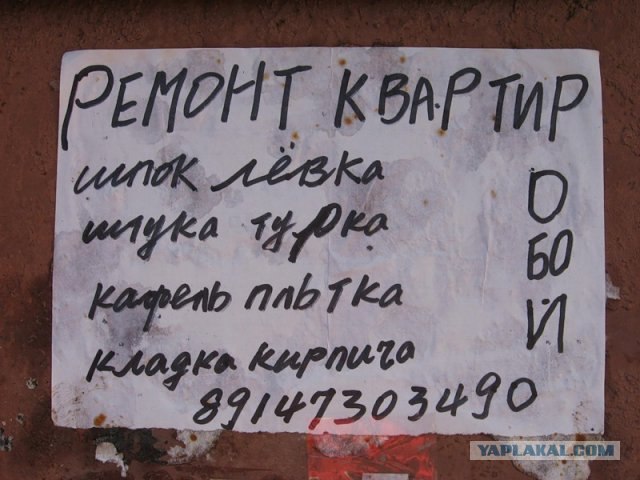 РЕМОНТ КВАРТИР
шпок лёвка
штука турка
кафель плътка
кладка кирпича
89147303490
О
БО
Й
YAPLAKAL.COM